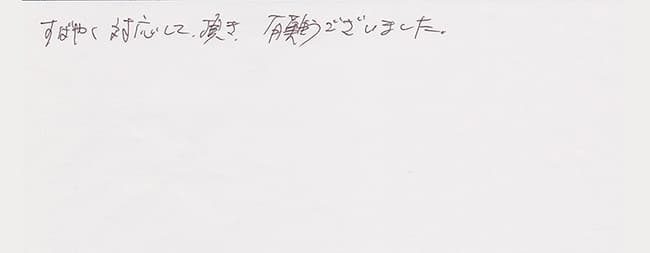 すばやく対応して、頂き 有難うございました。